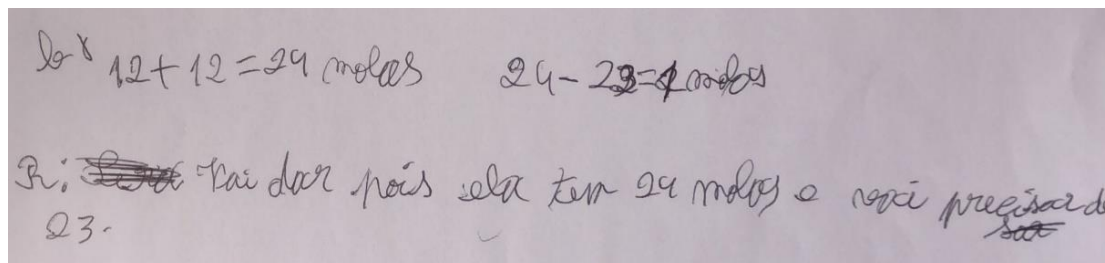 b) 12 + 12 = 24 molas 24 - 23 = 1 molas
R: Vai dar pois ela tem 24 molas e vai precisar de
23.